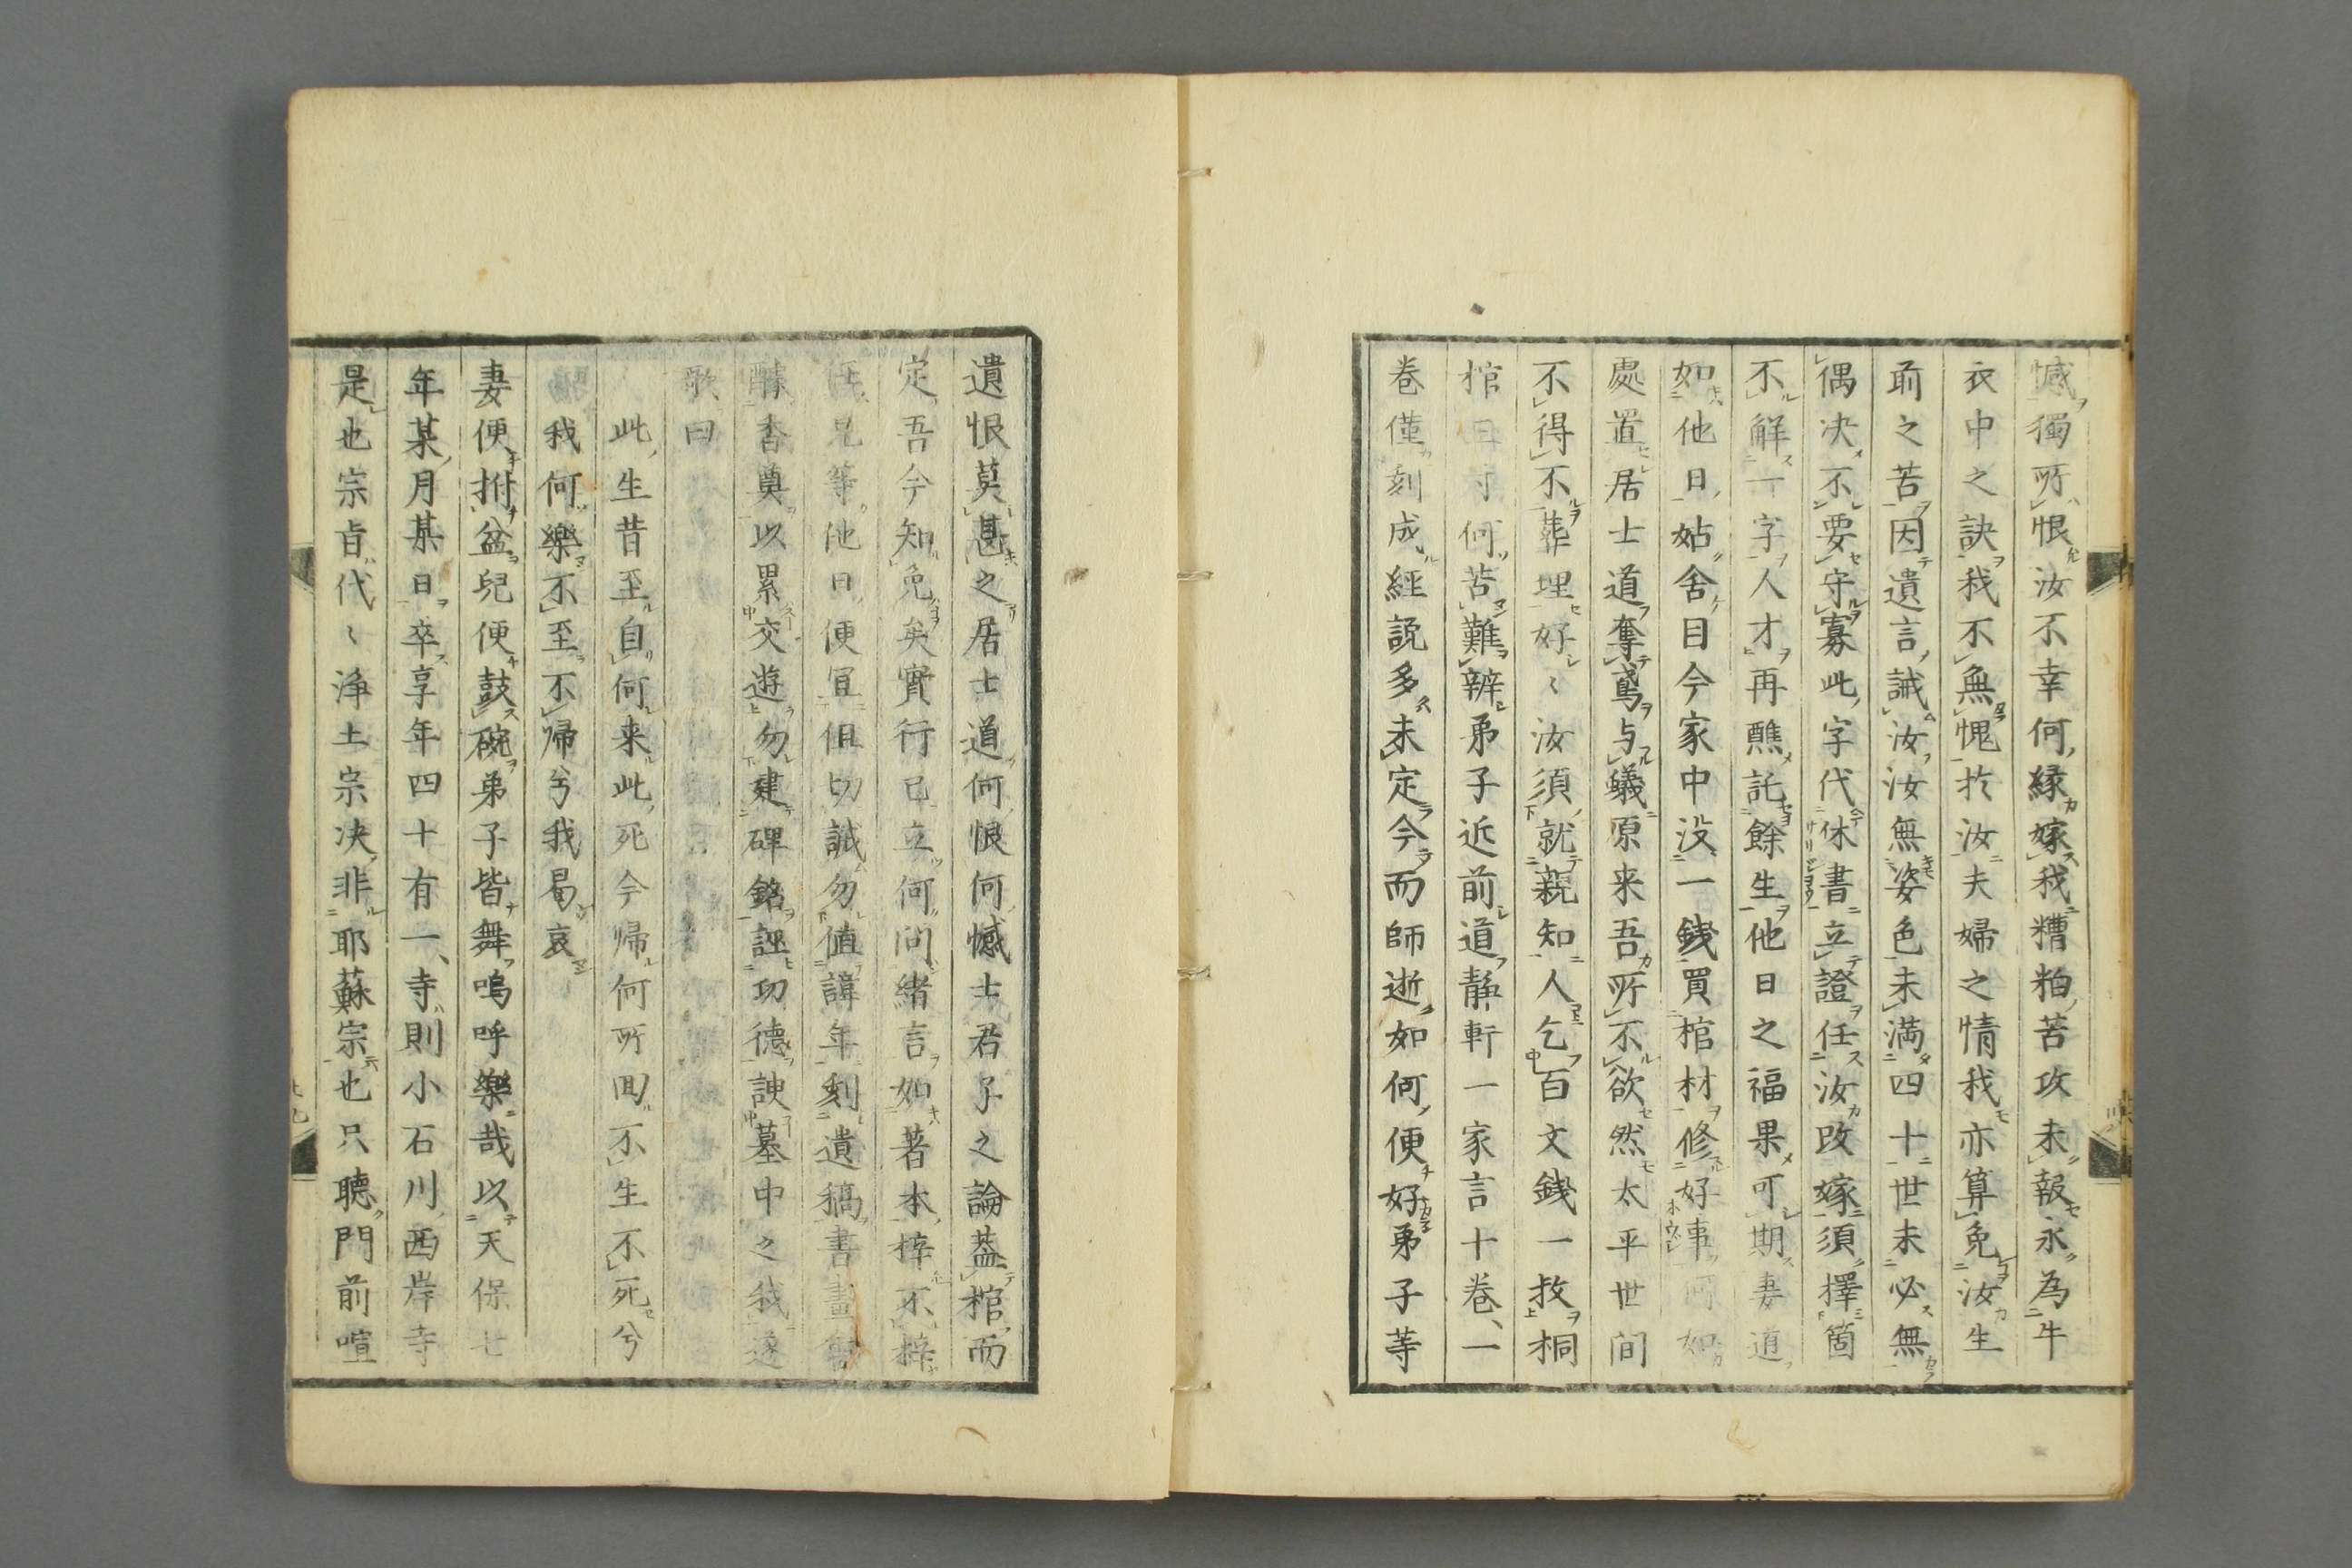 憾獨所恨汝不幸何縁嫁我糟粕苦攻未報永為牛
衣中之訣我不無愧於汝夫婦之情我亦算免汝生
前之苦因遺言誡汝汝無姿色未満四十世未必無
偶决不要守寡此字代休書立證任汝改嫁須擇箇
不解一字人才再醮託餘生他日之福果可期妻道
如他日姑舍目今家中没一銭買棺材修好事何如
處置居士道奪鳶与蟻原来吾所不欲然太平世間
不得不葬埋好〻汝須就親知人乞百文銭一枚桐
棺何苦難辨弟子近前道静軒一家言十巻、一
巻僅刻成經説多未定今而師逝如何便好弟子等
遺恨莫甚之居士道何恨何憾士君子之論葢棺而
定吾今知免矣實行已立何問緒言如著本梓不梓
兄等他日便宜但切誡勿値諱年刻遺稿書畫
醵香奠以累交遊勿建碑銘誣功徳諛墓中之我遂
歌曰
此生昔至自何来此死今帰何所回不生不死兮
我何樂不至不帰兮我曷哀
妻便拊盆兒便鼓碗弟子皆舞嗚呼樂哉以天保七
年某月某日卒享年四十有一、寺則小石川西岸寺
是也宗㫖代〻浄土宗决非耶蘇宗也只聴門前喧